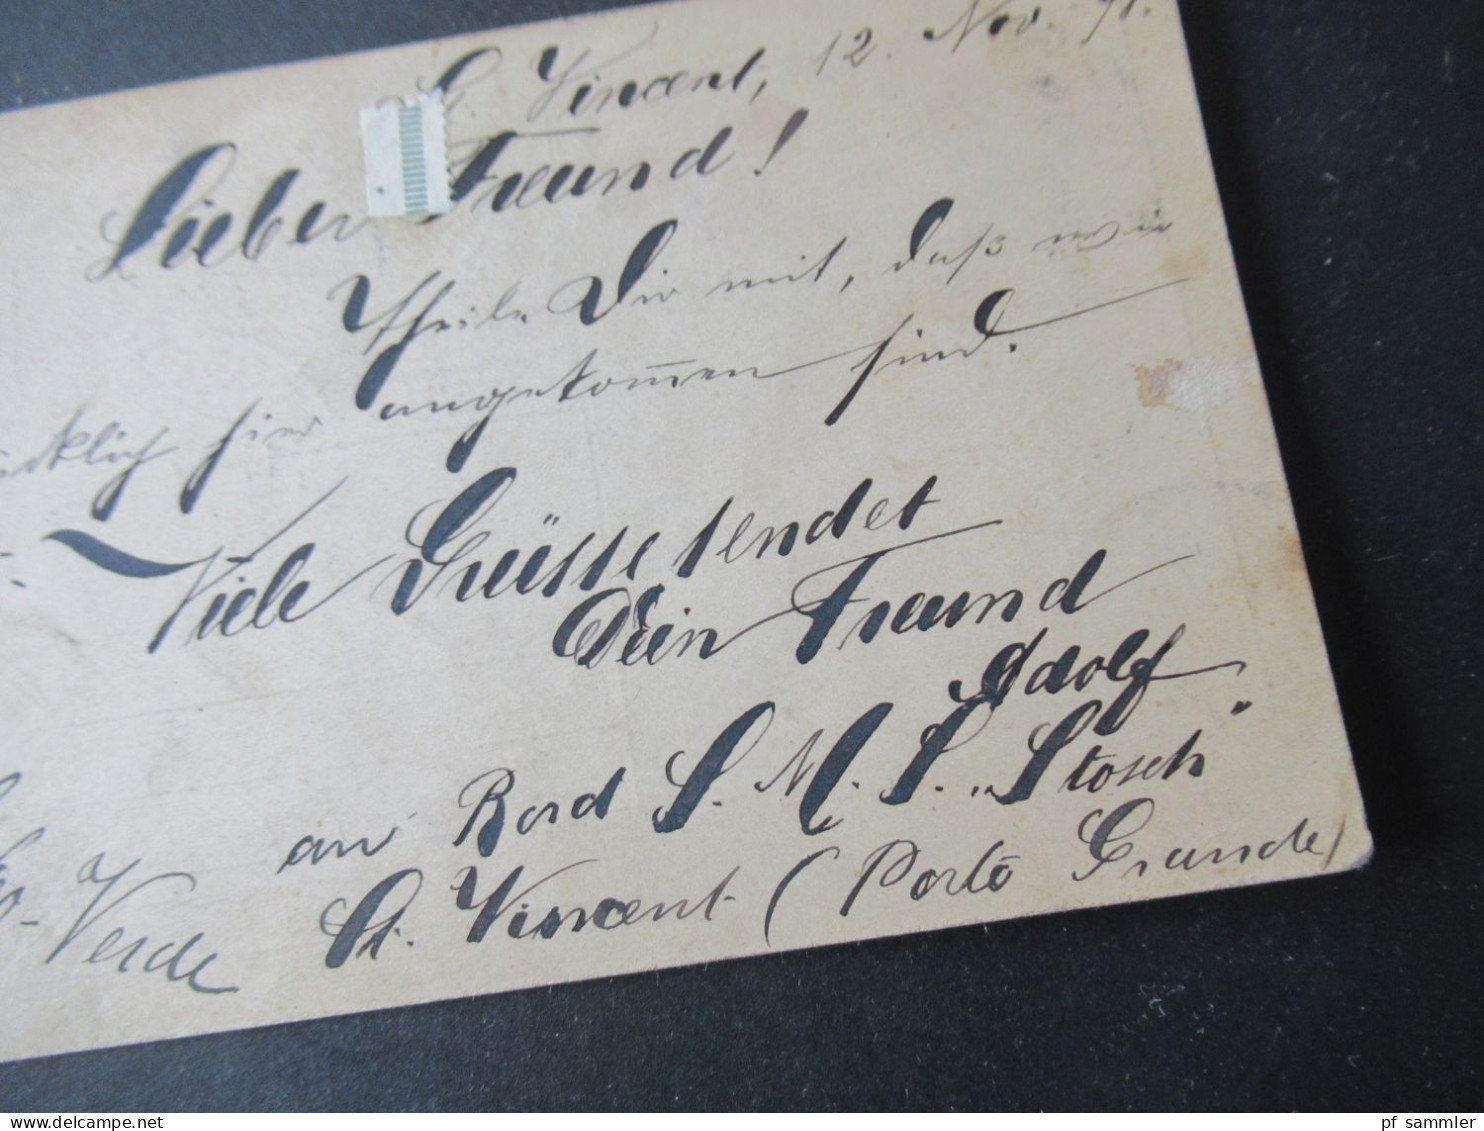 St. Vincent, 12. Nov. 91.
Lieber Freund!
Theile Dir mit, daß wir
ücklich hier angekommen sind.
Viele Grüsse sendet
Dein Freund
Adolf
an Bord S. M. S. „Stosch"
Verde St. Vincent (Porto Grande)
pf sammler